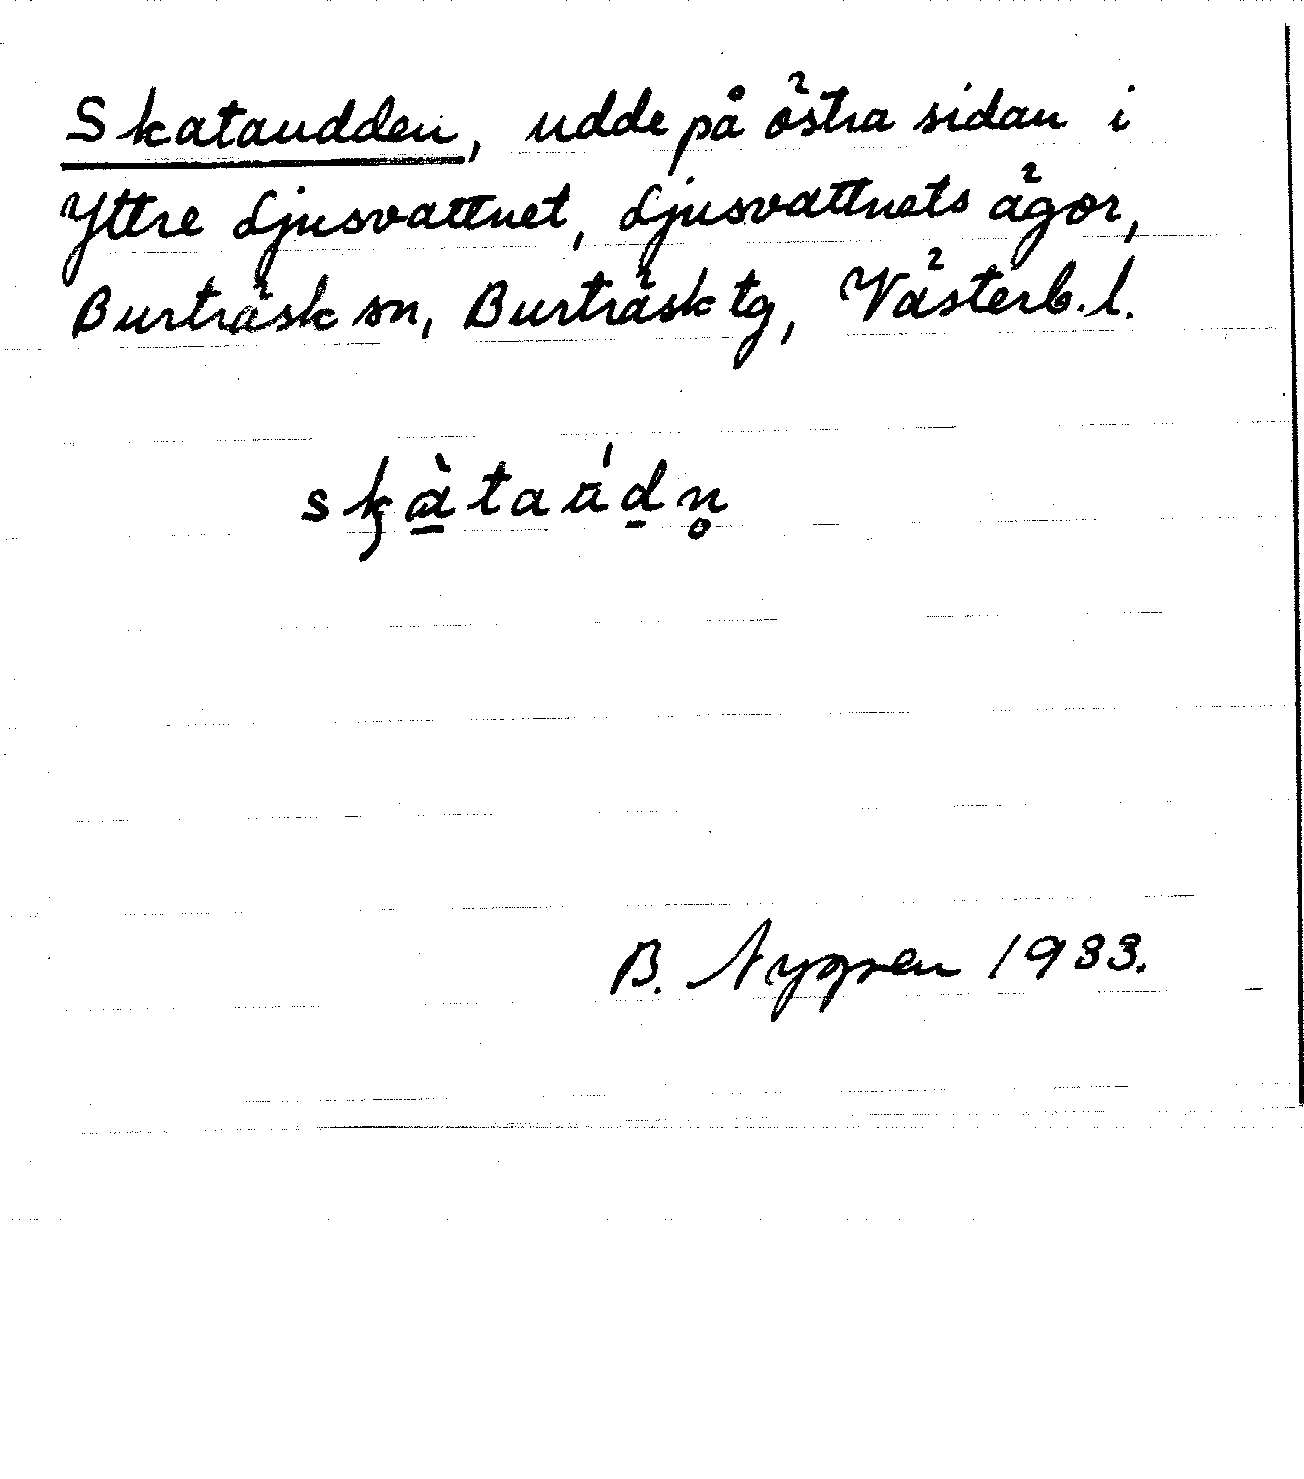 Skataudden, udde på östra sidan i
Yttre Ljusvattnet, Ljusvattnets ägor,
Burträsk sn, Burträsk tg, Västerb. l.
B. Nygren 1933.